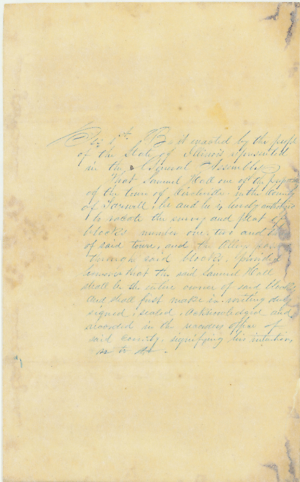 Sec 1st. Be it enacted by the people
of the State of Illinois represented
in the General Assembly
That Samuel Hall one of the
of the town of in the County
of Tazewell be and he is hereby authorized
to vacate the survey and plat of
blocks number one, two and
of said town, and the alleys
said blocks. Provided
however that the said Samuel Hall
shall be the entire owner of said blocks
and shall first make in writing duly
signed, sealed, acknowledged and
recorded in the recorders office of
said county signifying his intention
so to do.